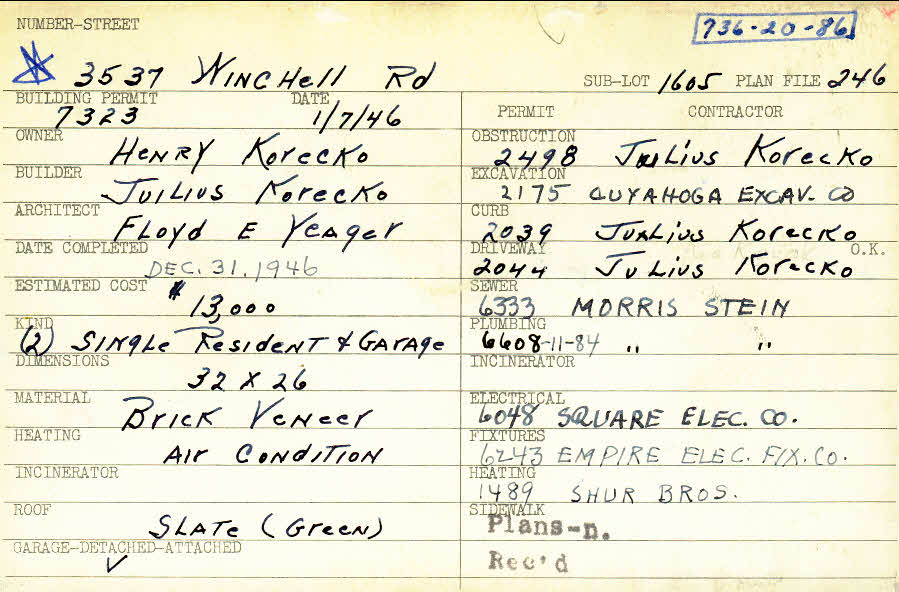 NUMBER-STREET
736-20-86
3537 Winchell Rd
SUB-LOT 1605 PLAN FILE 246
BUILDING PERMIT DATE
7323 1/7/46
PERMIT CONTRACTOR
OWNER
Henry Korecko
OBSTRUCTION
2498 Julius Korecko
BUILDER
Juilius Korecko
EXCAVATION
2175 CUYAHOGA EXCAV. CO
ARCHITECT
Floyd E Yeager
CURB
2039 Julius Korecko
DATE COMPLETED
DEC. 31, 1946
DRIVEWAY O.K.
2044 Julius Korecko
ESTIMATED COST
$13,000
SEWER
6333 MORRIS STEIN
KIND
(2) Single Resident & Garage
PLUMBING
6608-11-84 " "
DIMENSIONS
32 x 26
INCINERATOR
MATERIAL
Brick Veneer
ELECTRICAL
6048 SQUARE ELEC. CO.
HEATING
Air Condition
FIXTURES
6243 EMPIRE ELEC. FIX. CO.
INCINERATOR
HEATING
1489 SHUR BROS.
ROOF
Slate (Green)
SIDEWALK
Plans-n.
GARAGE-DETACHED-ATTACHED
✓
Rec'd